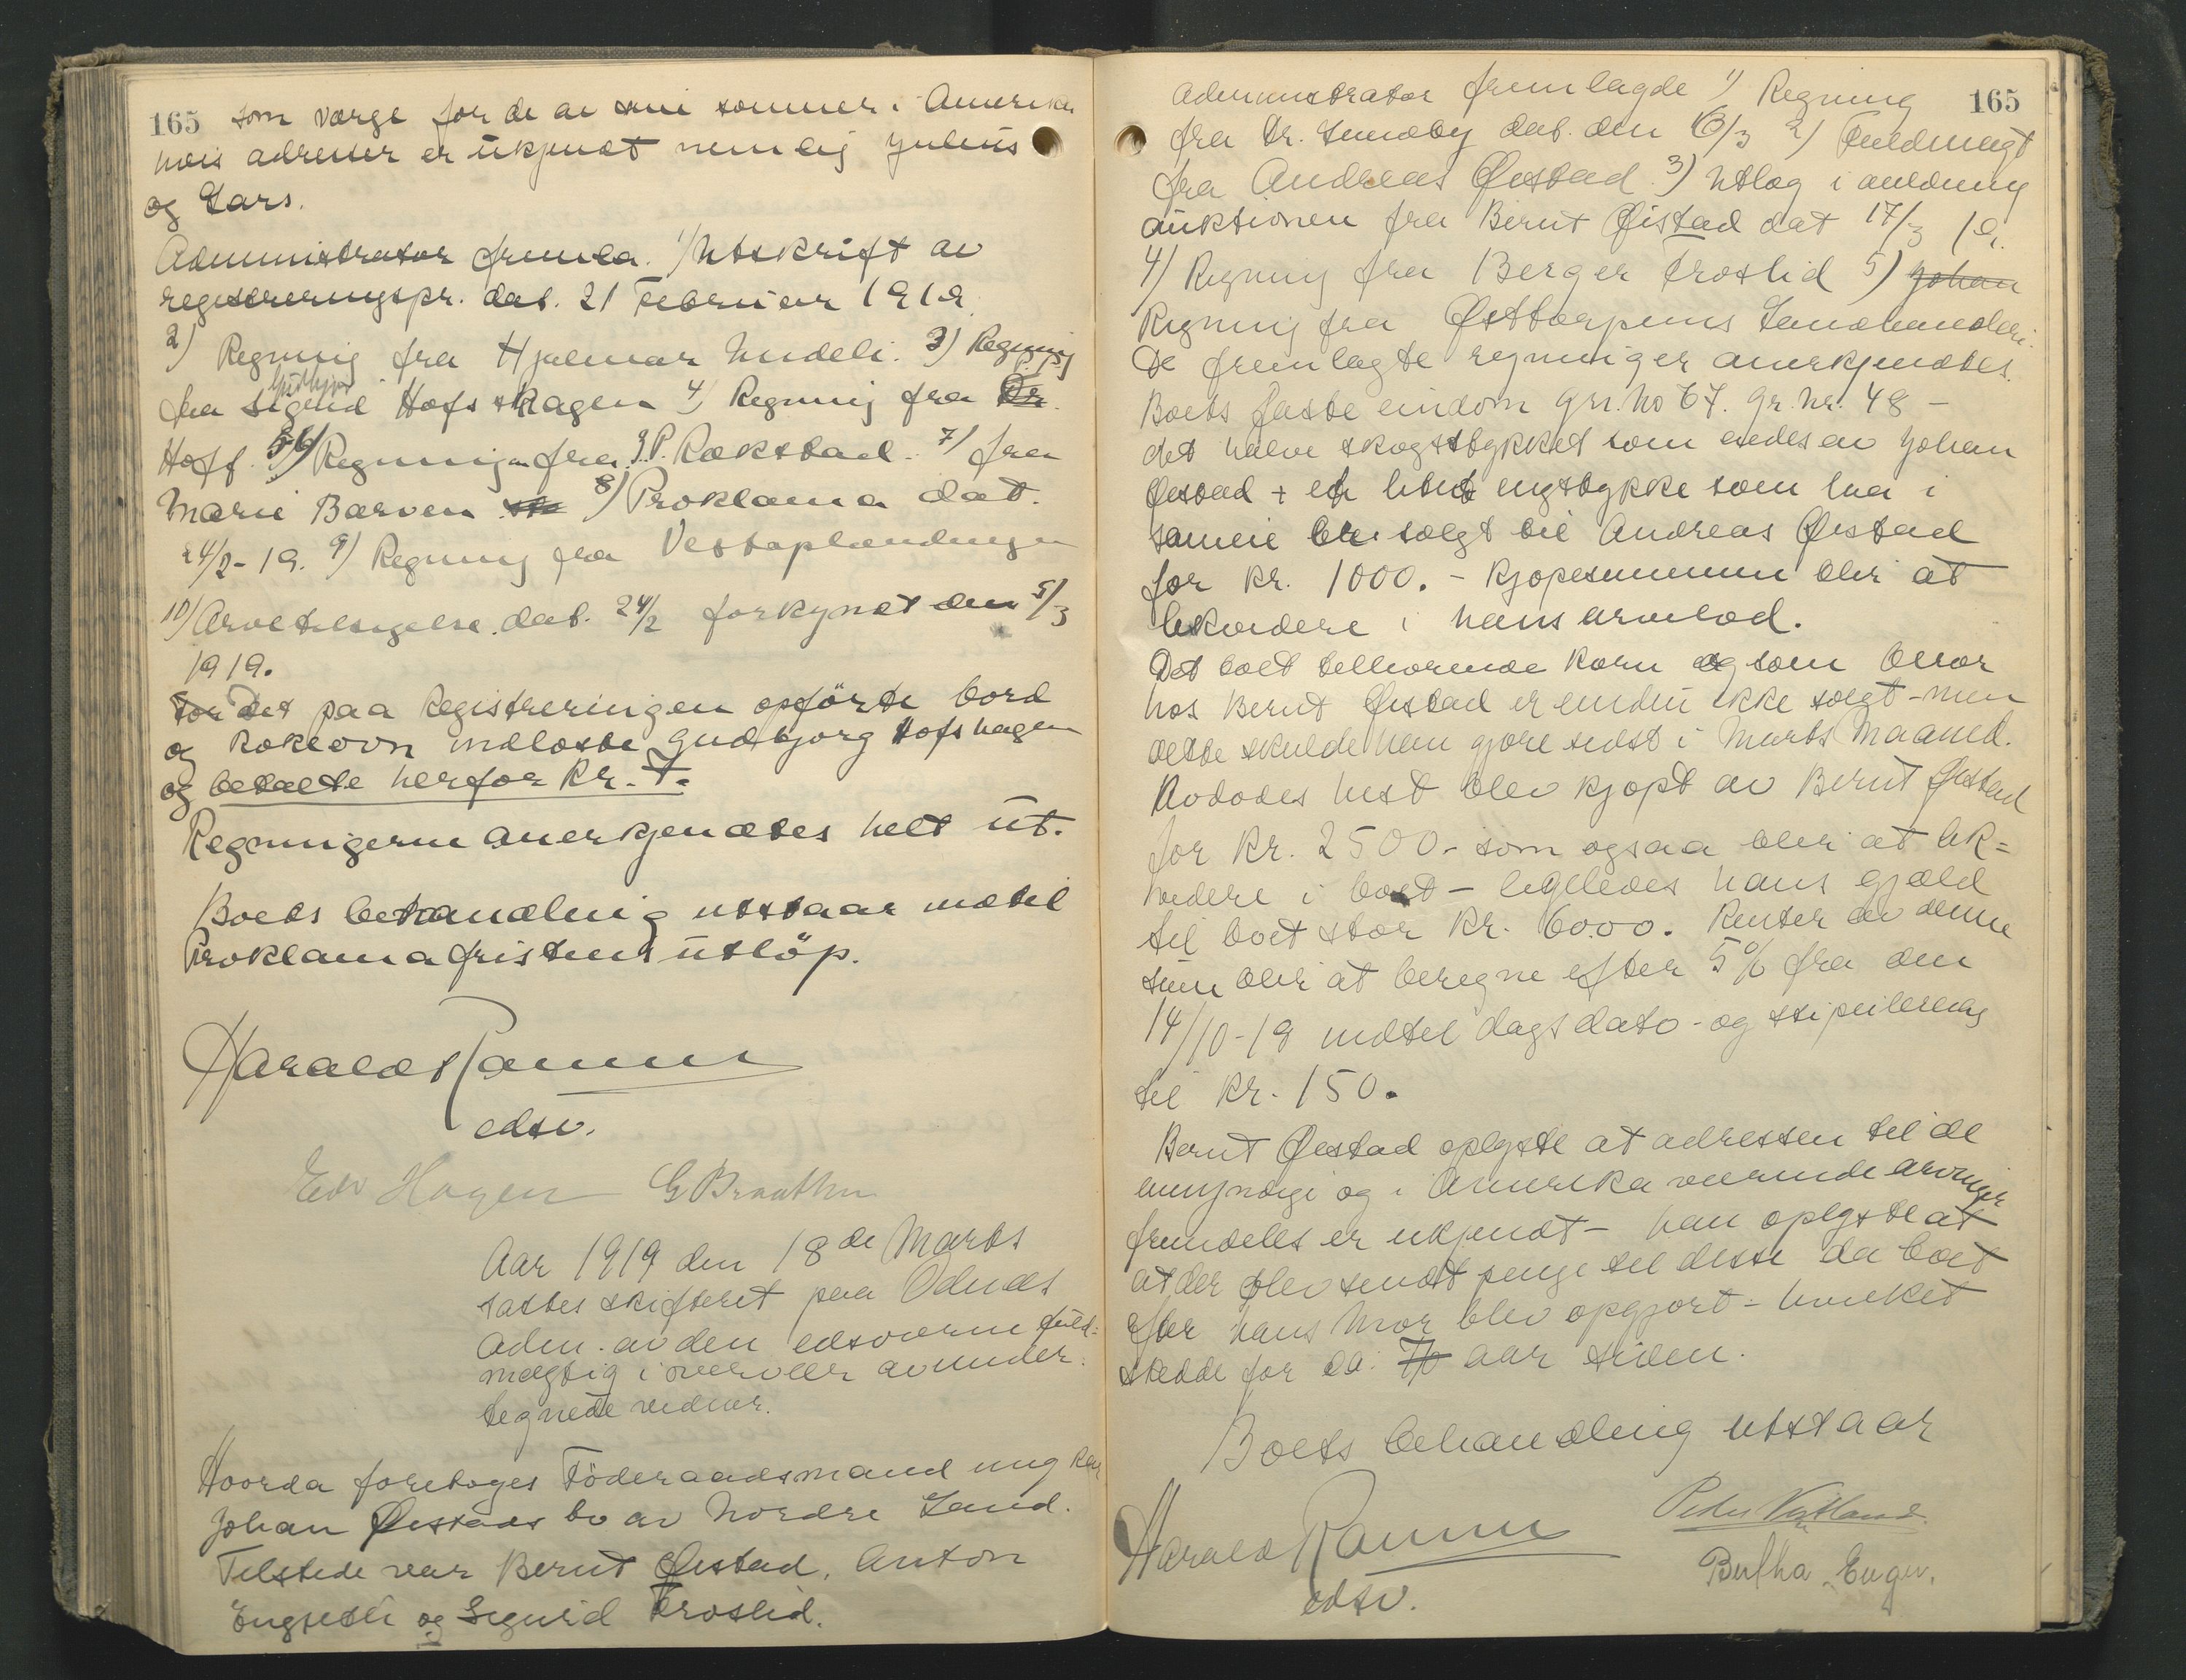 165 som værge for de av sine sønner i Amerika
hvis adresser er ukjendt nemlig Julius
og Lars.
Administrator fremla. 1) Utskrift av
registreringspr. dat. 21 Februar 1919.
2) Regning fra Hjalmar Lundeli. 3) Regning
Gudbjør
fra Sigrid Hofshagen 4) Regning fra Dr.
Hoff. 5 6) Regninger fra J.P. Rækstad. 7) fra
Marie Barven 8) Proklama dat.
24/2-19. 9) Regning fra Vestoplændingen
10) Arvetilsigelse dat. 24/2 forkyndt den 5/3
1919.
For Det paa Registreringen opførte bord
og kokeovn indløste Gudbjørg Hofshagen
og betalte herfor kr. 7.
Regningerne anerkjendtes helt ut.
Boets behandling utstaar indtil
Proklamafristens utløp.
Harald Ramm
edsv.
Edv Hagen G Braathen
Aar 1919 den 18de Marts
sattes skifteret paa Odnæs
Adm. av den edsvorne fuld-
mægtig i overvær av under-
tegnede vidner.
Hvorda foretoges Føderaadsmand ungkar
Johan Øistads bo av Nordre Land.
Tilstede var Bernt Øistad, Anton
Engseth og Sigurd Froslid.
165
Administrator fremlagde 1) Regning
fra Dr. Lundby dat. den 16/3 2) Fuldmagt
fra Andreas Øistad 3) Utlæg i anledning
auktionen fra Bernt Øistad dat 17/3 19.
4) Regning fra Berger Froslid 5) Johan
Regning fra Østtorpens Landhandleri.
De fremlagte regninger anerkjendtes.
Boets faste eiendom grn. no 67. gr. nr. 48 -
det halve skogstykket som eiedes av Johan
Øistad + et litet engstykke som laa i
sameie ble solgt til Andreas Øistad
for kr. 1000.- Kjøpesummen blir at
likvidere i hans arvelod.
Det boet tilhørende korn og som beror
hos Bernt Øistad er endnu ikke solgt - men
dette skulde han gjøre sidst i Marts Maaned.
Avdødes hest blev kjøpt av Bernt Øistad
for kr. 2500.- som ogsaa blir at lik=
videre i boet - ligeledes hans gjæld
til boet stor kr. 6000. Renter av denne
sum blir at beregne efter 5% fra den
14/10-18 indtil dags dato - og stipuleredes
til kr. 150.
Bernt Øistad oplyste at adressen til de
umyndige og i Amerika værende arvinger
fremdeles er ukjendt - han oplyste at
at der blev sendt penge til disse da boet
efter hans Mor blev opgjort - hvilket
skedde for ca. 7/8 aar siden.
Boets behandling utstaar
Harald Ramm
edsv.
Peder Vestland
Bertha Enger.